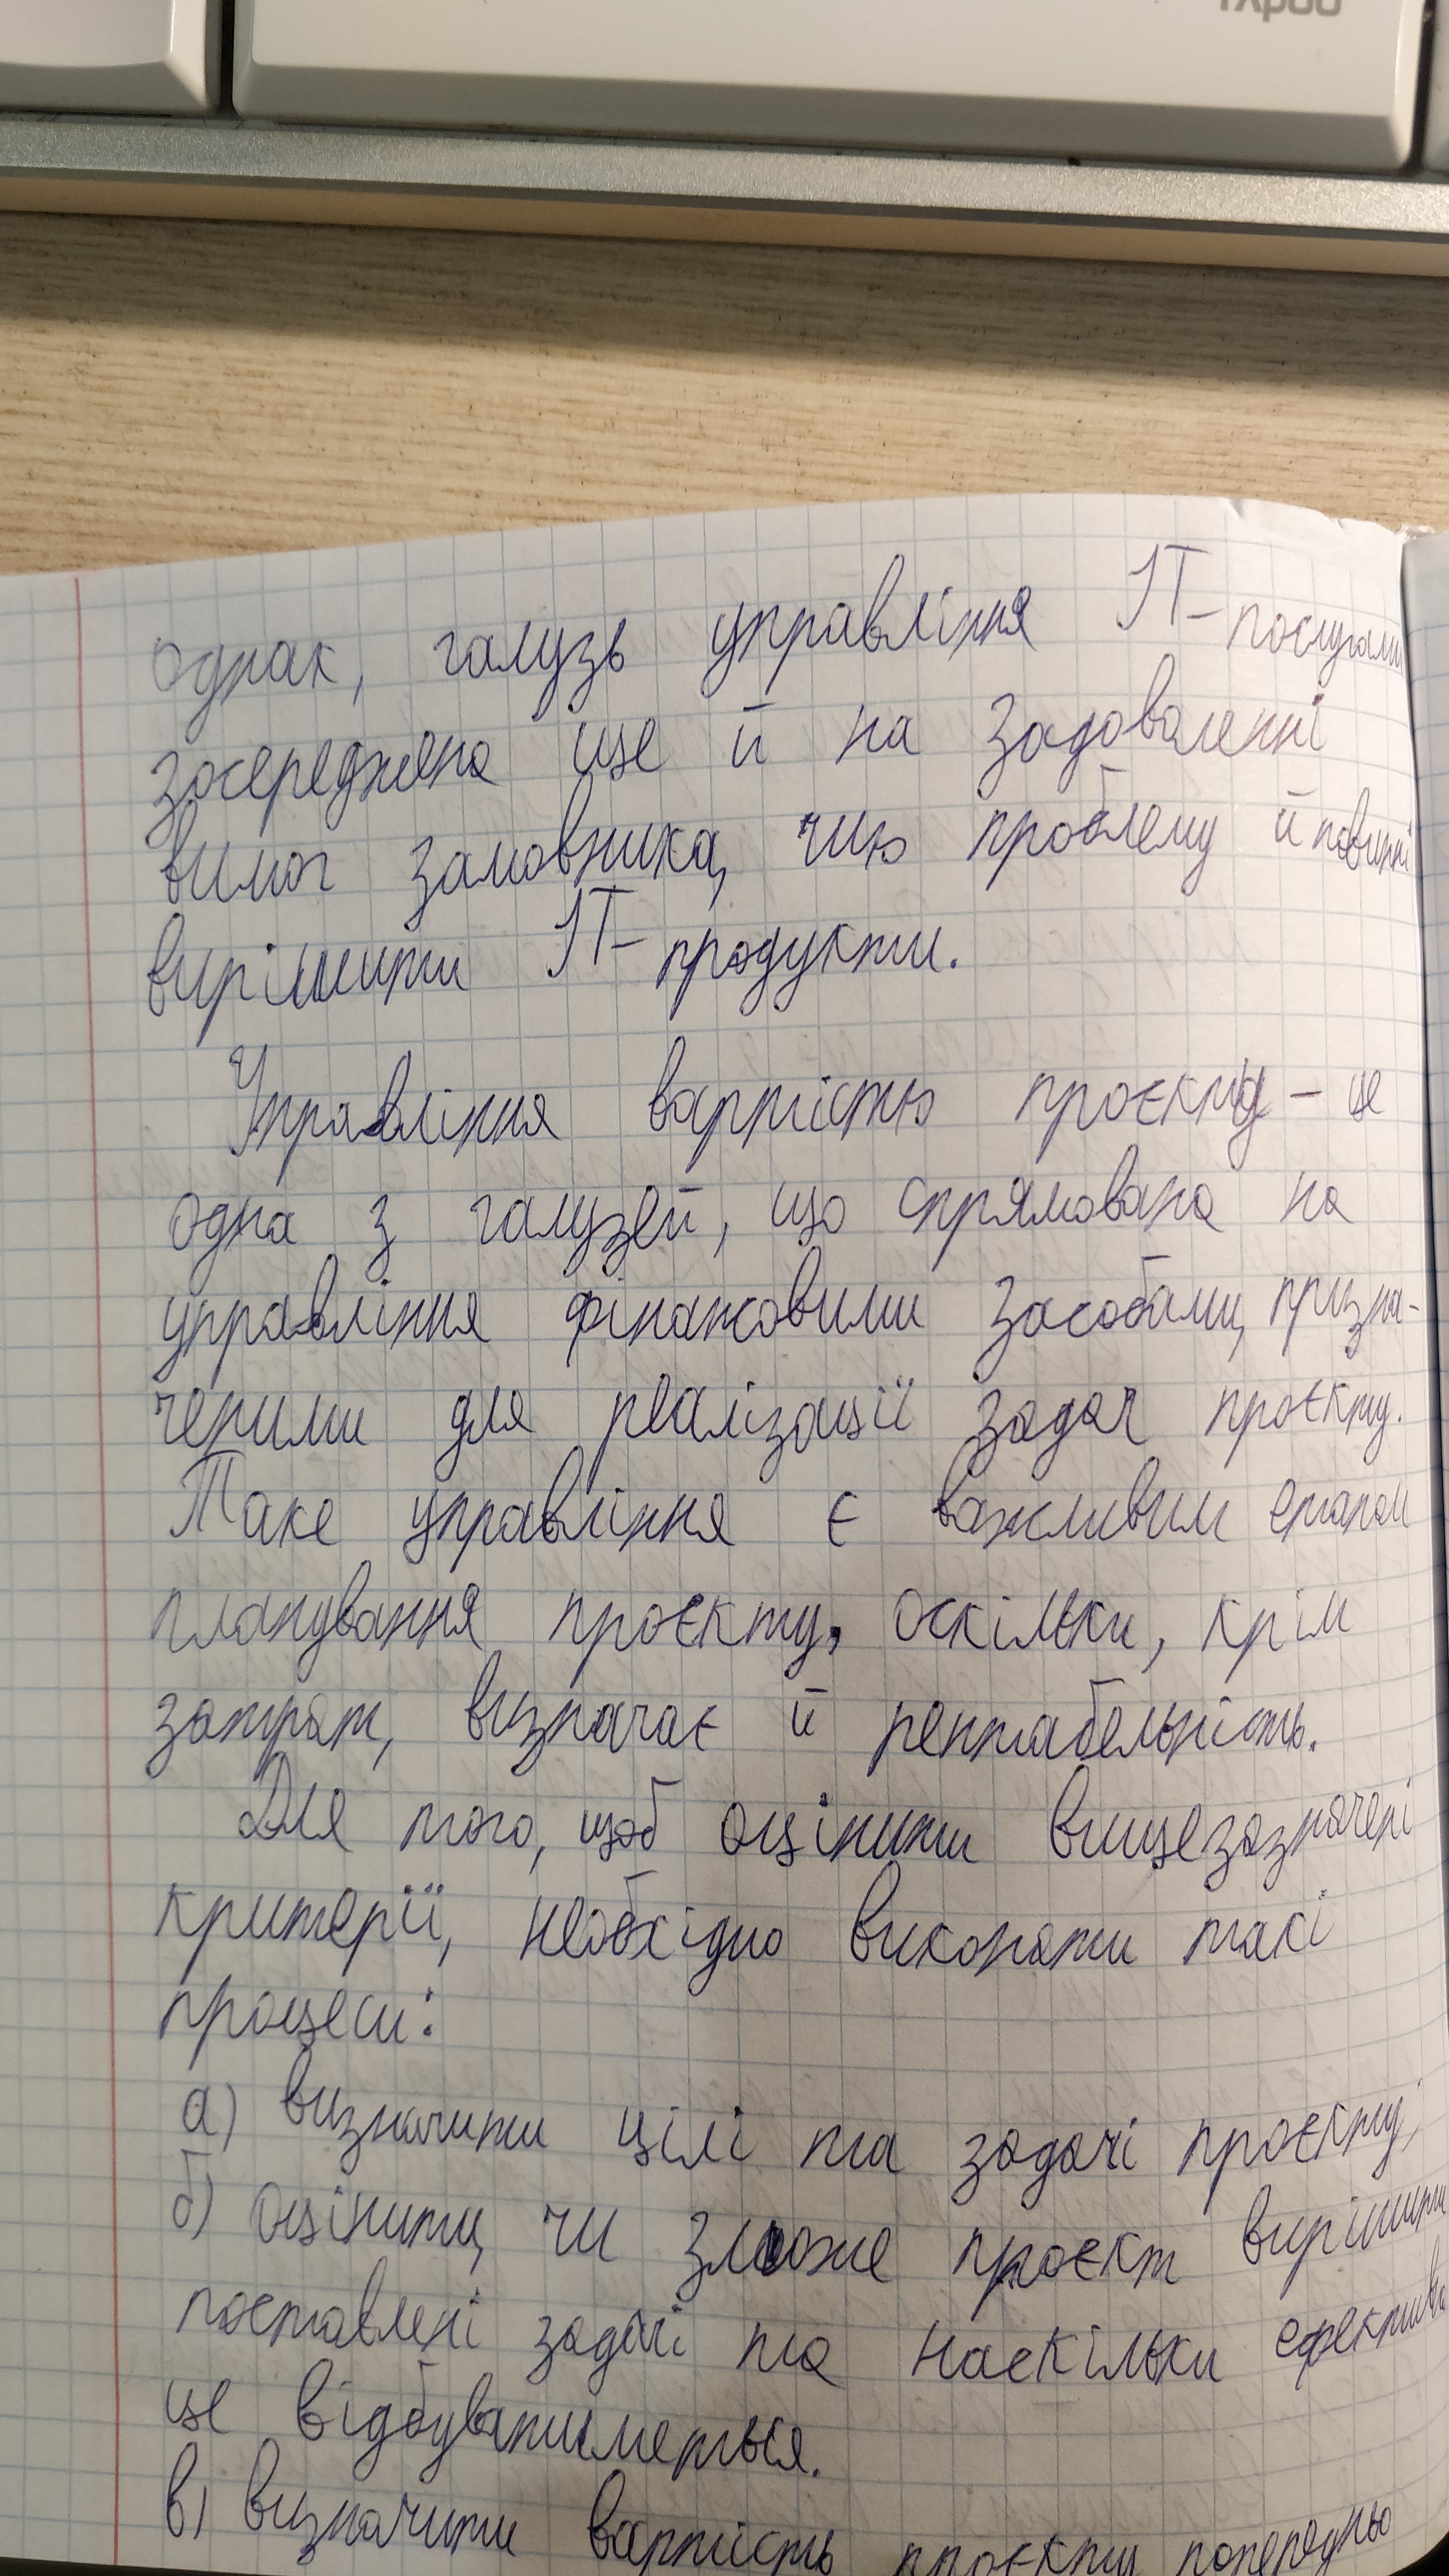 однак, галузь управління ІТ-послугами
зосереджена ще й на задоволенні
вимог замовника, чию проблему й повинні
вирішити ІТ-продукти.
Управління вартістю проєкту - це
одна з галузей, що спрямована на
управління фінансовими засобами, призна-
ченими для реалізації задач проєкту.
Таке управління є важливим етапом
планування проєкту, оскільки, крім
затрат, визначає й рентабельність.
Для того, щоб оцінити вищезазначені
критерії, необхідно виконати такі
процеси:
а) визначити цілі та задачі проєкту;
б) оцінити, чи зможе проєкт вирішити
поставлені задачі та наскільки ефективно
це відбуватиметься.
в) визначити вартість проєкту попередньо